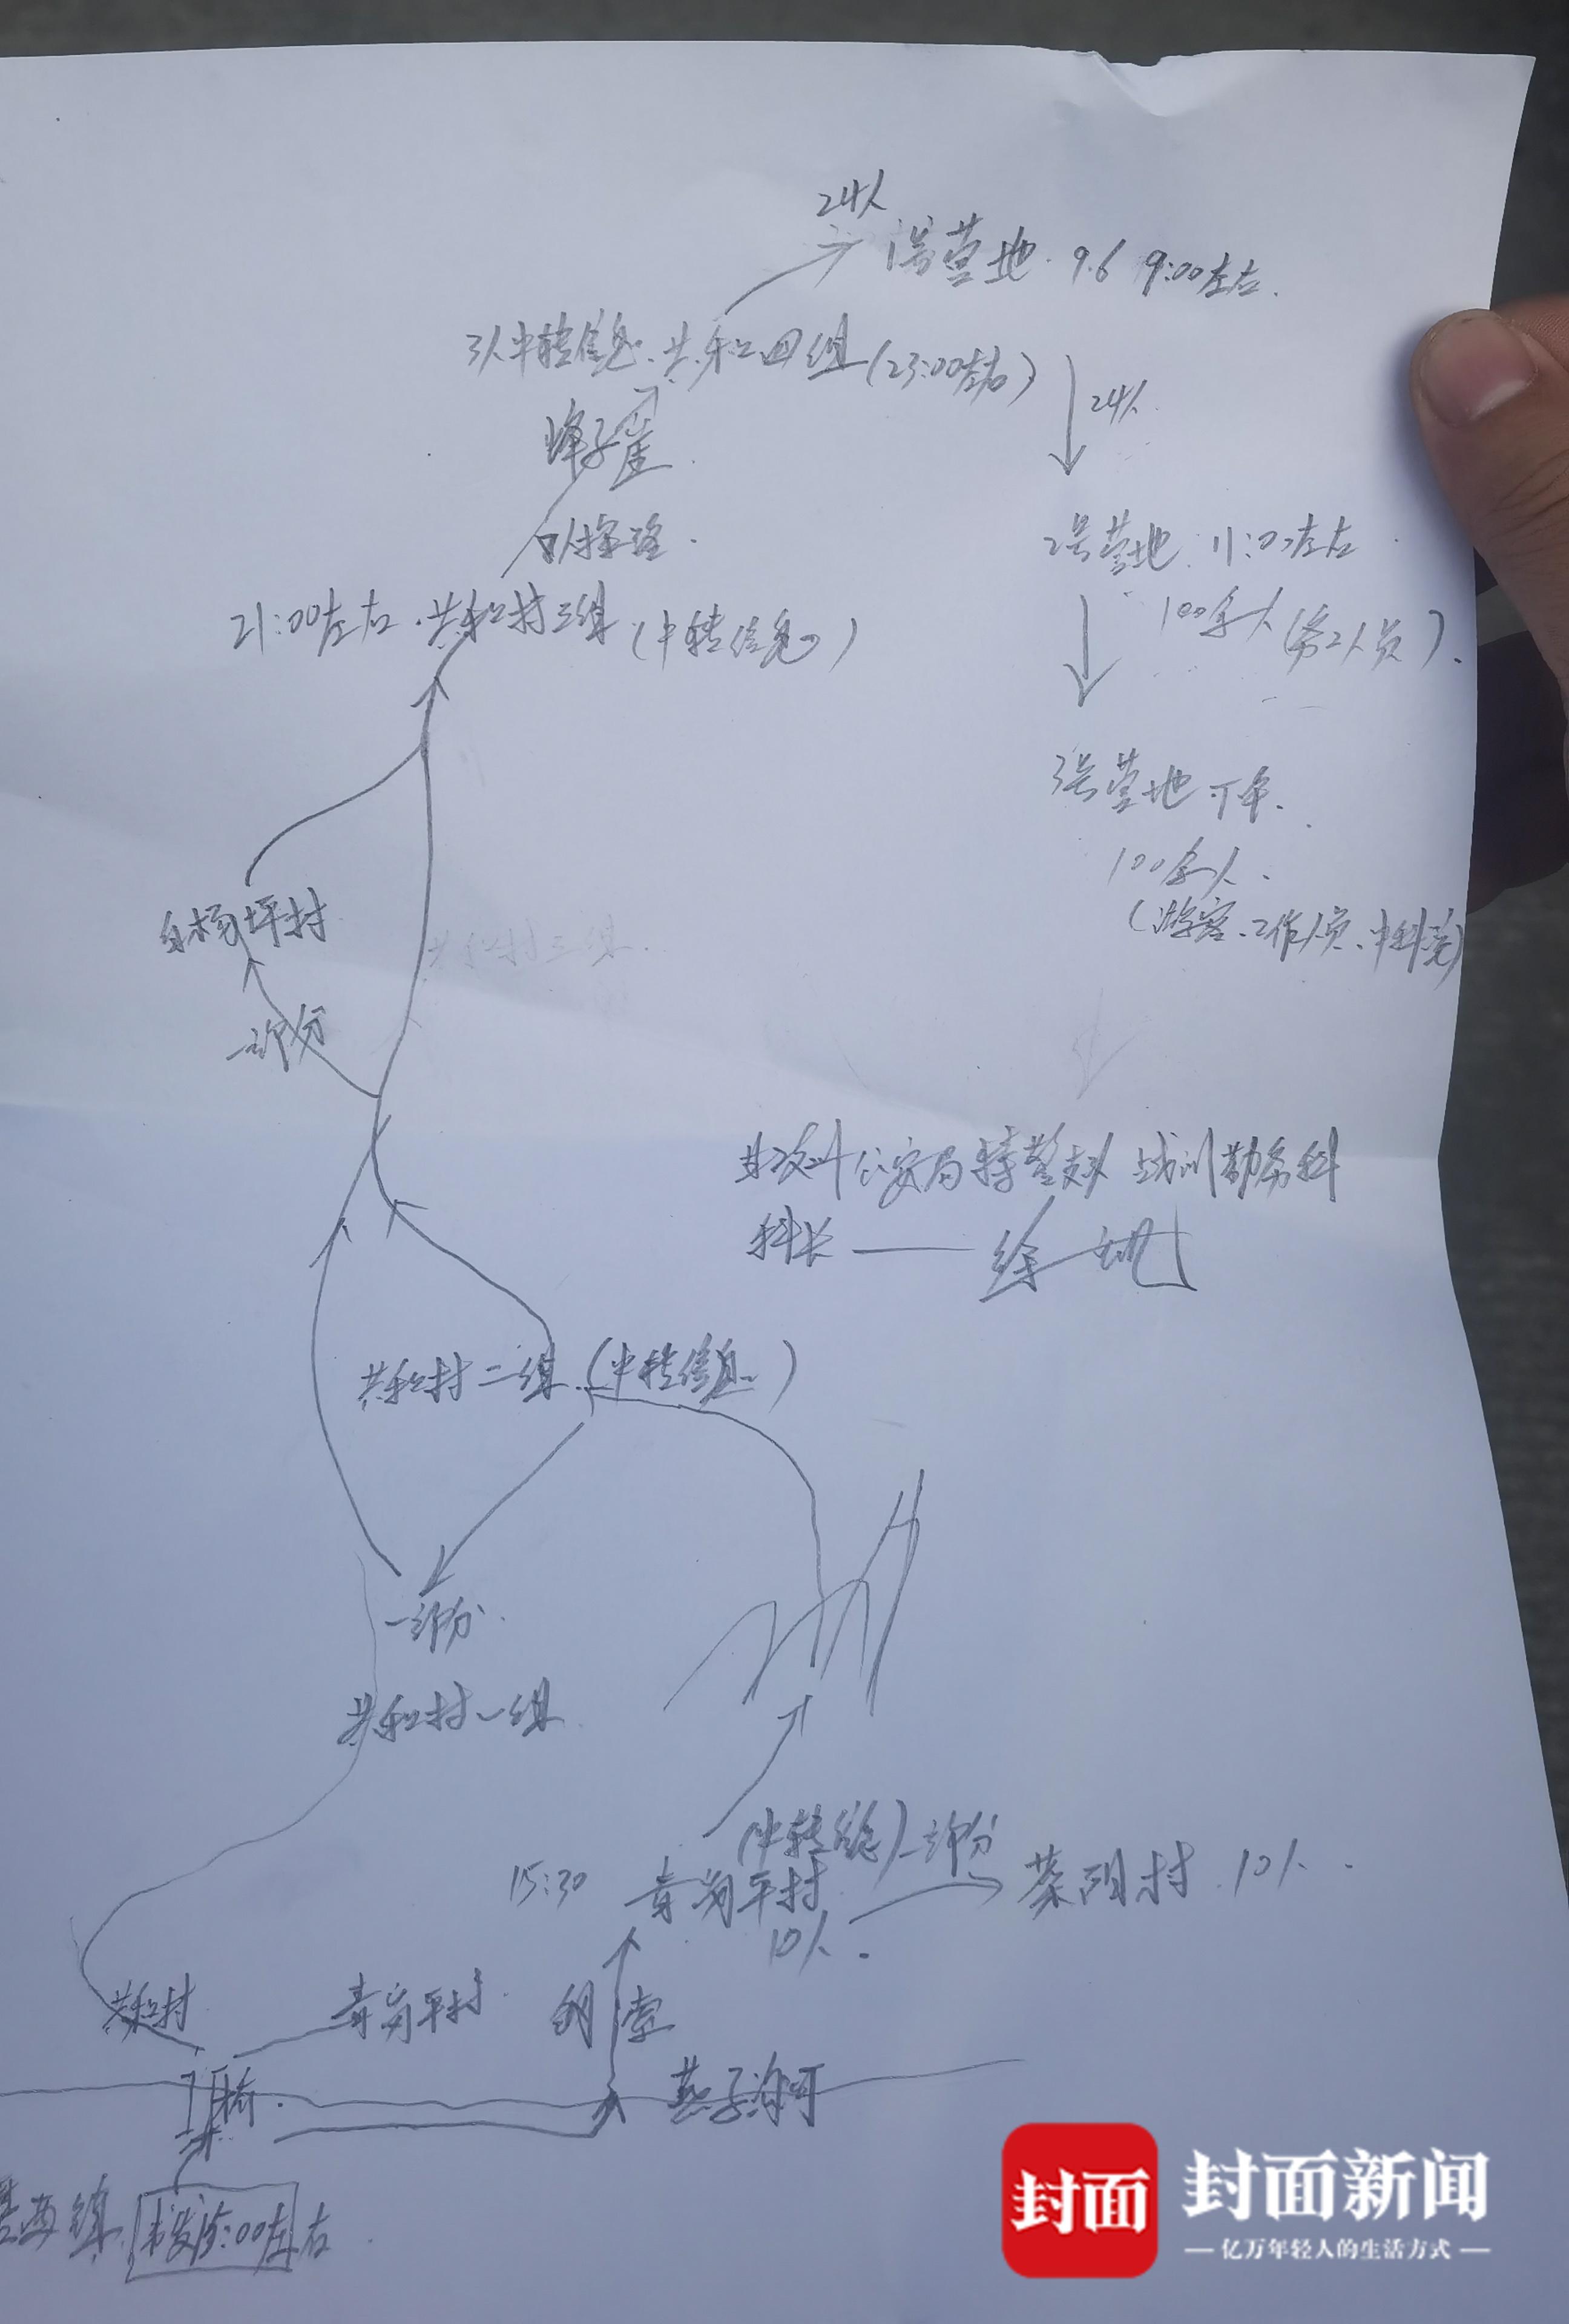 24人
1号营地. 9.6 9:00左右.
3人中转信息. 共和四组(23:00左右)
24人
蜂子崖
探路.
2号营地 11:00左右
100余人(务工人员).
21:00左右. 共和村三组(中转信息)
3号营地 下午.
100余人.
(游客、工作人员、中科院)
白杨坪村
共和村三组.
一部分
甘孜州公安局特警支队 战训勤务科
科长——徐
共和村二组.(中转信息)
一部分.
共和村一组
(中转信息)一部分
15:30 青岗坪村
10人.
蔡阳村 10人.
共和村
青岗平村.
钢索
桥.
燕子沟河
出发15:00左右.
封面 封面新闻
— 亿万年轻人的生活方式 —